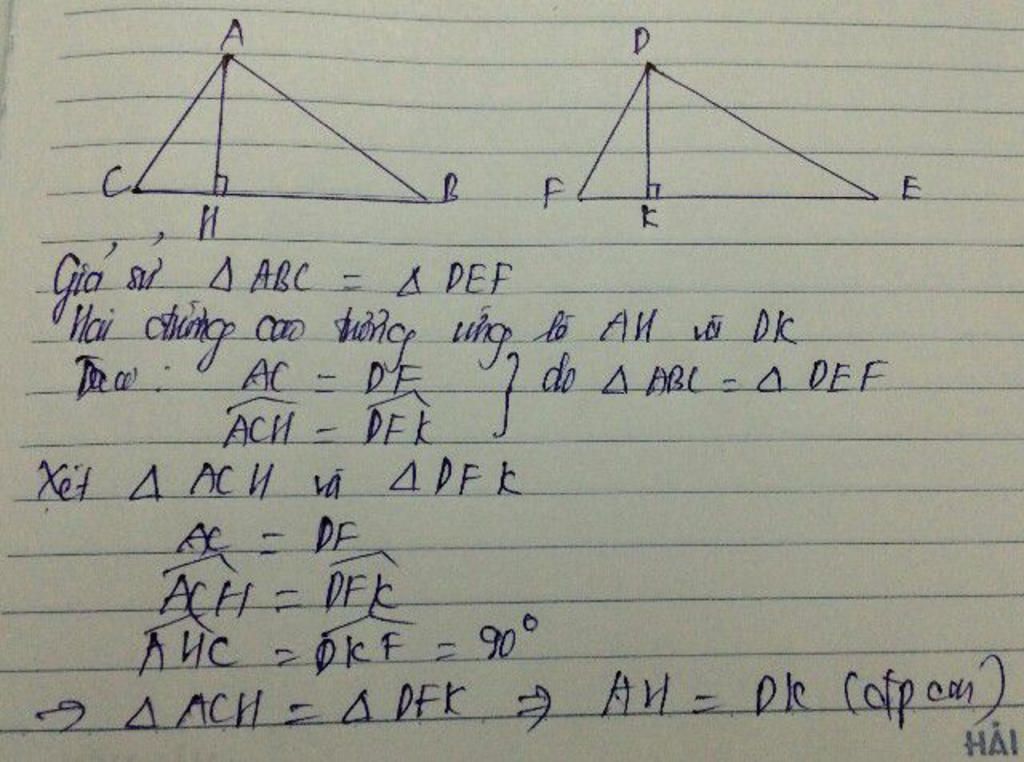 A
D
C
B
F
E
H
K
Giả sử Δ ABC = Δ DEF
Hai đường cao tương ứng là AH và DK
Ta có: AC = DF } do Δ ABC = Δ DEF
ACH = DFK
Xét Δ ACH và Δ DFK
AC = DF
ACH = DFK
AHC = DKF = 90°
→ Δ ACH = Δ DFK ⇒ AH = DK (đfpcm)
HẢI